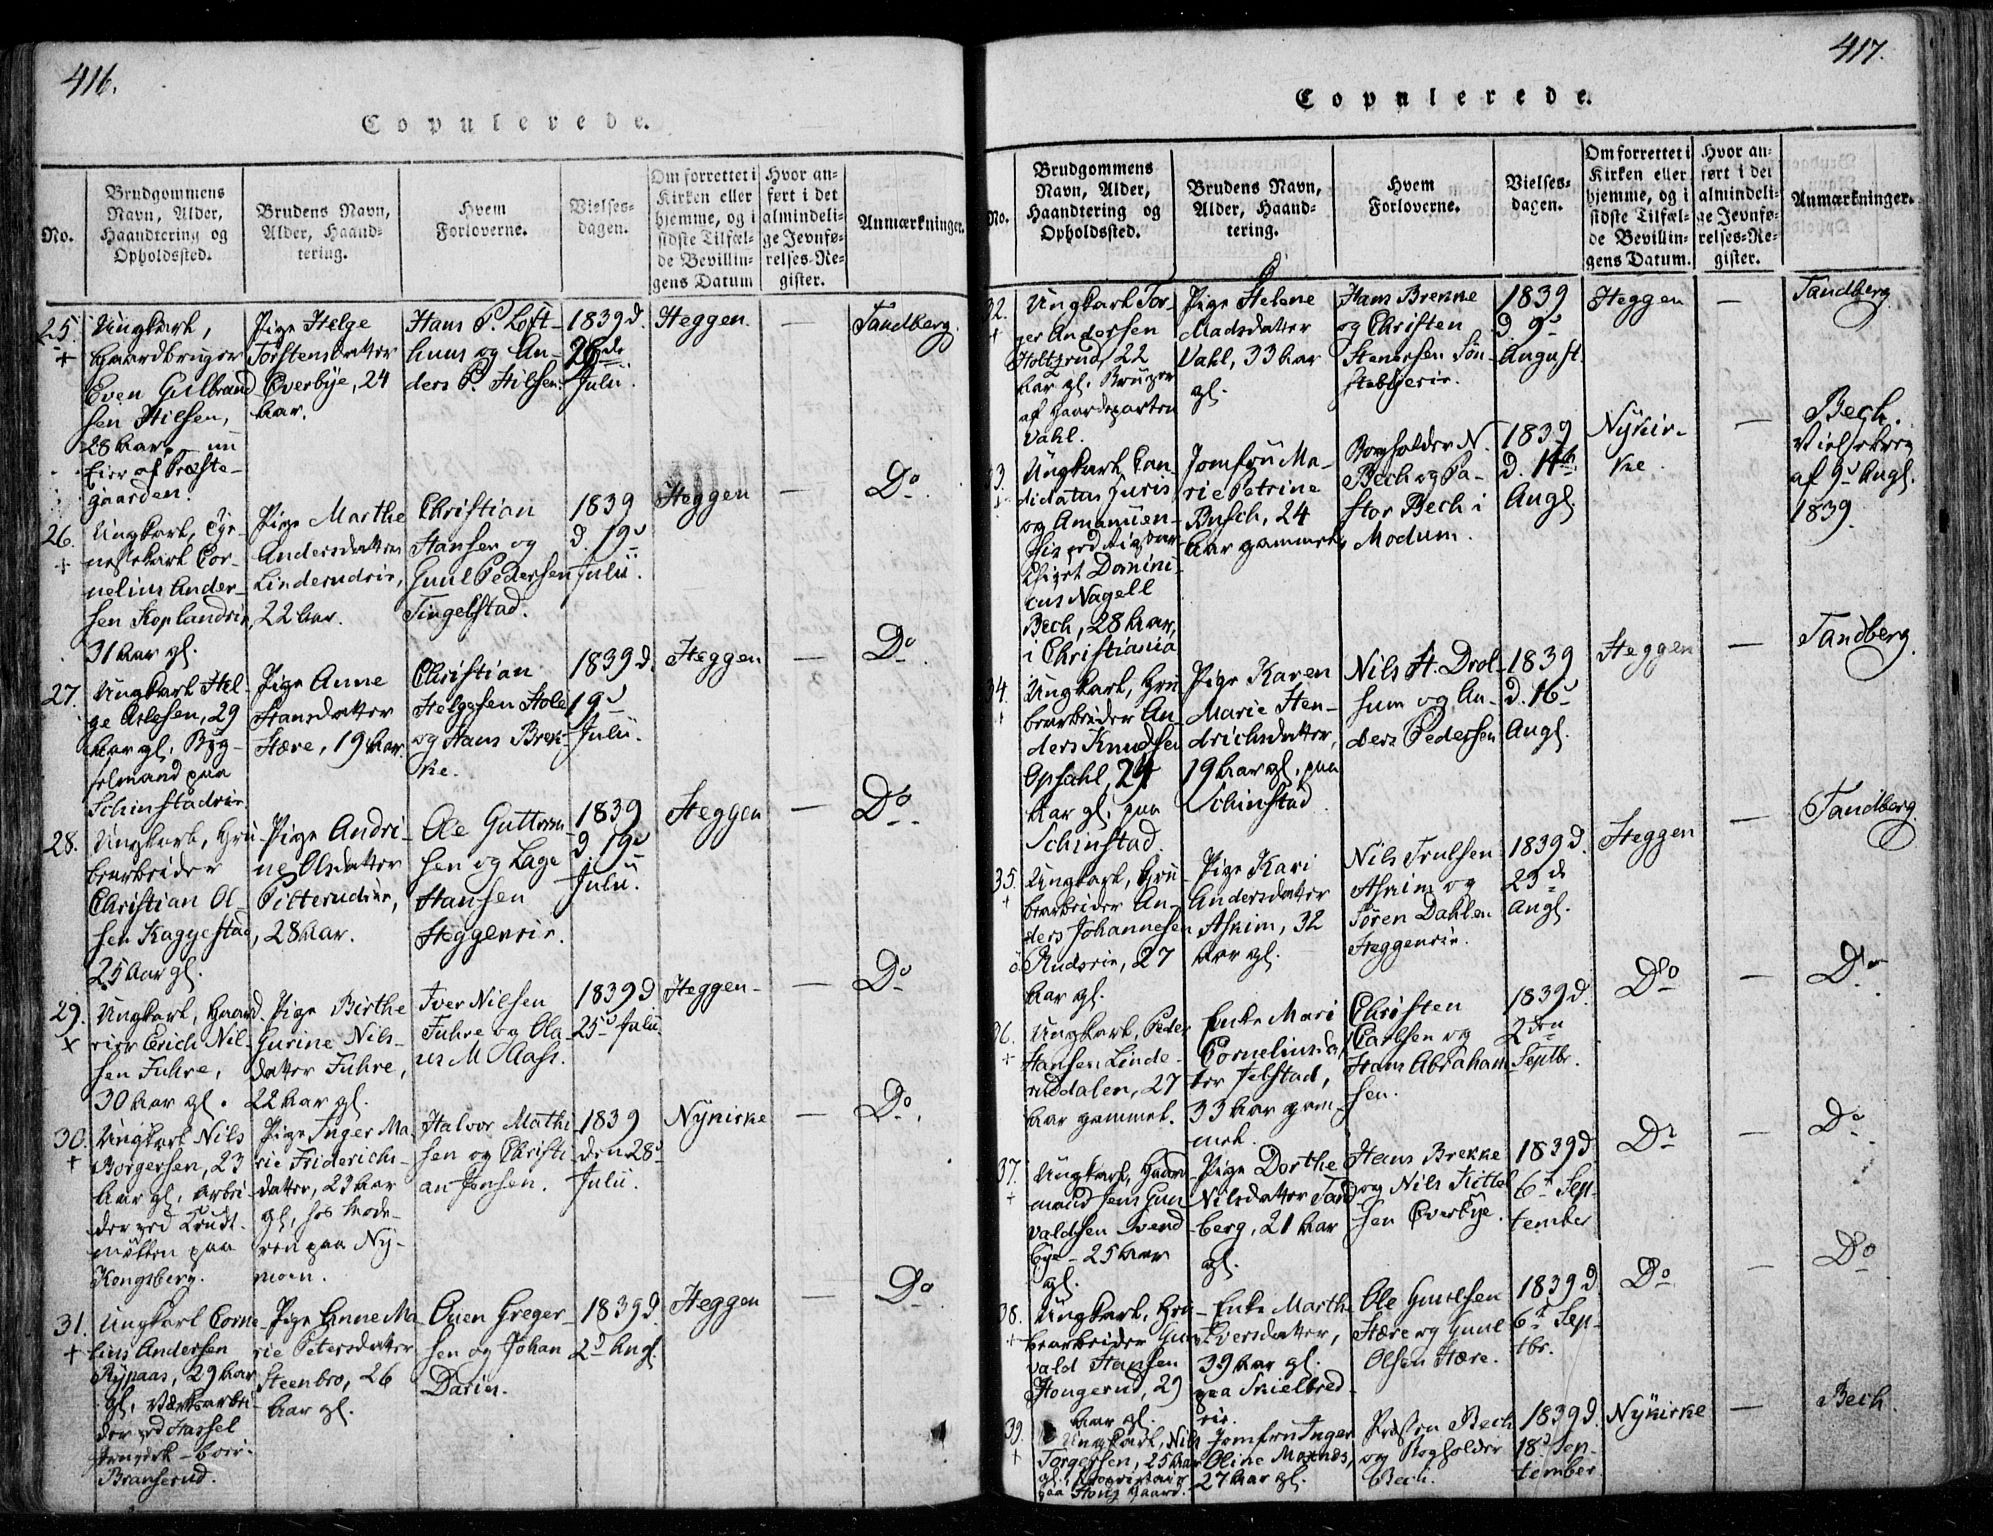 416.
Copulerede.
No.
Brudgommens
Navn, Alder,
Haandtering og
Opholdssted.
Brudens Navn,
Alder, Haand-
tering.
Hvem
Forloverne.
Vielses-
dagen.
Om forrettet i
Kirken eller
hjemme, og i
sidste Tilfæl-
de Bevillin-
gens Datum
Hvor an-
ført i det
almindeli-
ge Jevnfø-
relses-Re-
gister.
Anmærkninger.
25.
+
Ungkarl,
Gaardbruger
Even Gulbrand
sen Hilsen,
28 Aar, nu
Eier af Præste-
gaarden.
Pige Helge
Torstensdatter
Everbye, 24
Aar.
Hans P. Loft-
huus og An-
ders P. Hilsen.
1839 d.
26de
Julii.
Heggen.
—
Tandberg.
26.
+
Ungkarl,
Cor-
nelius Ander-
sen Koplandeie,
31 Aar gl.
Pige Marthe
Andersdatter
Linderudeie,
22 Aar.
Christian
Hansen og
Guul Pedersen
Tingelstad.
1839
d. 19d
Julii.
Heggen
—
Do.
27.
Ungkarl Hel-
ge Aslesen, 29
Aar gl. Byg-
selmand paa
Schinstadeie
Pige Anne
Hansdatter
Hære, 19 Aar
Christian
Helgesen Hole
og Hans Brek-
ke.
1839 d.
19d
Julii.
Heggen
—
Do.
28.
Ungkarl, Gru-
bearbeider
Christian Ol-
sen Kaggestad,
25 Aar gl.
Pige Andri-
ne Olsdatter
Pitterudeie,
28 Aar.
Ole Guttorm-
sen og Lage
Hansen
Heggeneie.
1839
d. 19d
Julii.
Heggen
—
Do.
29.
x
Ungkarl, Gaard-
eier Erich Nil-
sen Fuhre,
30 Aar gl.
Pige Birthe
Gurine Nils-
datter Fuhre,
22 Aar gl.
Iver Nilsen
Fuhre og Ola-
us M. Aass.
1839 d
25d Julii
Heggen
—
Do
30.
+
Ungkarl Nils
Borgersen, 23
Aar gl. Arbei-
der ved Krudt-
møllen paa
Kongsberg.
Pige Inger Ma-
rie Friderichs-
datter, 23 Aar
gl., hos Mode-
ren paa Ny-
moen.
Halvor Mathi-
sen og Christi-
an Jensen.
1839
den 28d
Julii.
Nykirke
—
Do.
31.
+
Ungkarl Corne-
lius Andersen
Rypaas, 29 Aar
gl. Værksarbei-
der ved Hassel
Jernverk - boer
Branserud.
Pige Anne Ma-
rie Petersdatter
Steenbro, 26
Aar gl.
Oven Greger-
sen og Johan
Darin.
1839 d.
2d Augl.
Heggen
—
Do
417.
Copulerede.
No.
Brudgommens
Navn, Alder,
Haandtering og
Opholdssted.
Brudens Navn,
Alder, Haand-
tering.
Hvem
Forloverne.
Vielses-
dagen.
Om forrettet i
Kirken eller
hjemme, og i
sidste Tilfæl-
de Bevillin-
gens Datum.
Hvor an-
ført i det
almindeli-
ge Jevnfø-
relses-Re-
gister.
Anmærkninger.
32.
+
Ungkarl Tor-
ger Andersen
Holtzrud, 22
Aar gl. Bruger
af Gaardeparten
Vahl.
Pige Helene
Madsdatter
Vahl, 33 Aar
gl.
Hans Brenne
og Christen
Stenersen Søn-
stebyeeie.
1839
d. 9d
August.
Heggen
—
Tandberg.
33.
+
Ungkarl, Can-
didatus Juris
og Amanuen-
sis ved
Domini-
cus Nagell
Bech, 28 Aar,
i Christiania
Jomfru Ma-
rie Petrine
Busch, 24
Aar gammel,
Bogholder N.
Bech og Pa-
stor Bech i
Modum.
1839
d.
Augl
Nykir-
ke.
—
Bech.
af 9d Augl.
1839.
34.
+
Ungkarl, Gru-
bearbeider An-
ders Knudsen
Opsahl, 24
Aar gl. paa
Schinstad.
Pige Karen
Marie Hen-
drichsdatter,
19 Aar gl. paa
Schinstad
Nils H. Drol-
sum og An-
ders Pedersen
1839
d. 16d
Augl.
Heggen
—
Tandberg.
35.
+
Ungkarl, Gru-
bearbeider An-
ders Johannesen
Rudseie, 27
Aar gl.
Pige Kari
Andersdatter
Askim, 32
Aar gl.
Nils Trulsen
Askim og
Søren Dahlen
Heggeneie.
1839 d.
23de
Augl.
Heggen
—
Tandberg.
36.
+
Ungkarl, Peder
Hansen Linde-
ruddalen, 27
Aar gammel.
Enke Mari
Corneliusdat-
ter Jelstad,
33 Aar gam-
mel.
Christen
Carlsen og
Hans Abraham-
sen.
1839 d.
2den
Septbr.
Do
—
Do.
37.
+
Ungkarl, Gaard-
mand Jens Gun-
valdsen Svend-
bye - 25 Aar
gl.
Pige Dorthe
Nilsdatter Tand-
berg, 21 Aar
gl.
Hans Brekke
og Nils Kittel-
sen Everbye.
1839 d
6te Sep-
tember
Do
—
Do.
38.
+
Ungkarl, Gru-
bearbeider Gun-
vald Hansen
Hougerud, 29
Aar gl.
Enke Marthe
Eversdatter,
39 Aar gl.
paa Skielbred-
eie.
Ole Guulsen
Hære og Guul
Olsen Hære.
1839 d.
6te Sep-
tbr.
Do
—
Do
39.
+
Ungkarl, Nils
Torgersen, 25 Aar
gl., Proprietair
paa Houg Gaard.
Jomfru Inger
Oline Moxnes,
27 Aar gl.
Pastor Bech
og Bogholder
Bech.
1839 d.
18d Sep-
tember
Nykirke
—
Bech.